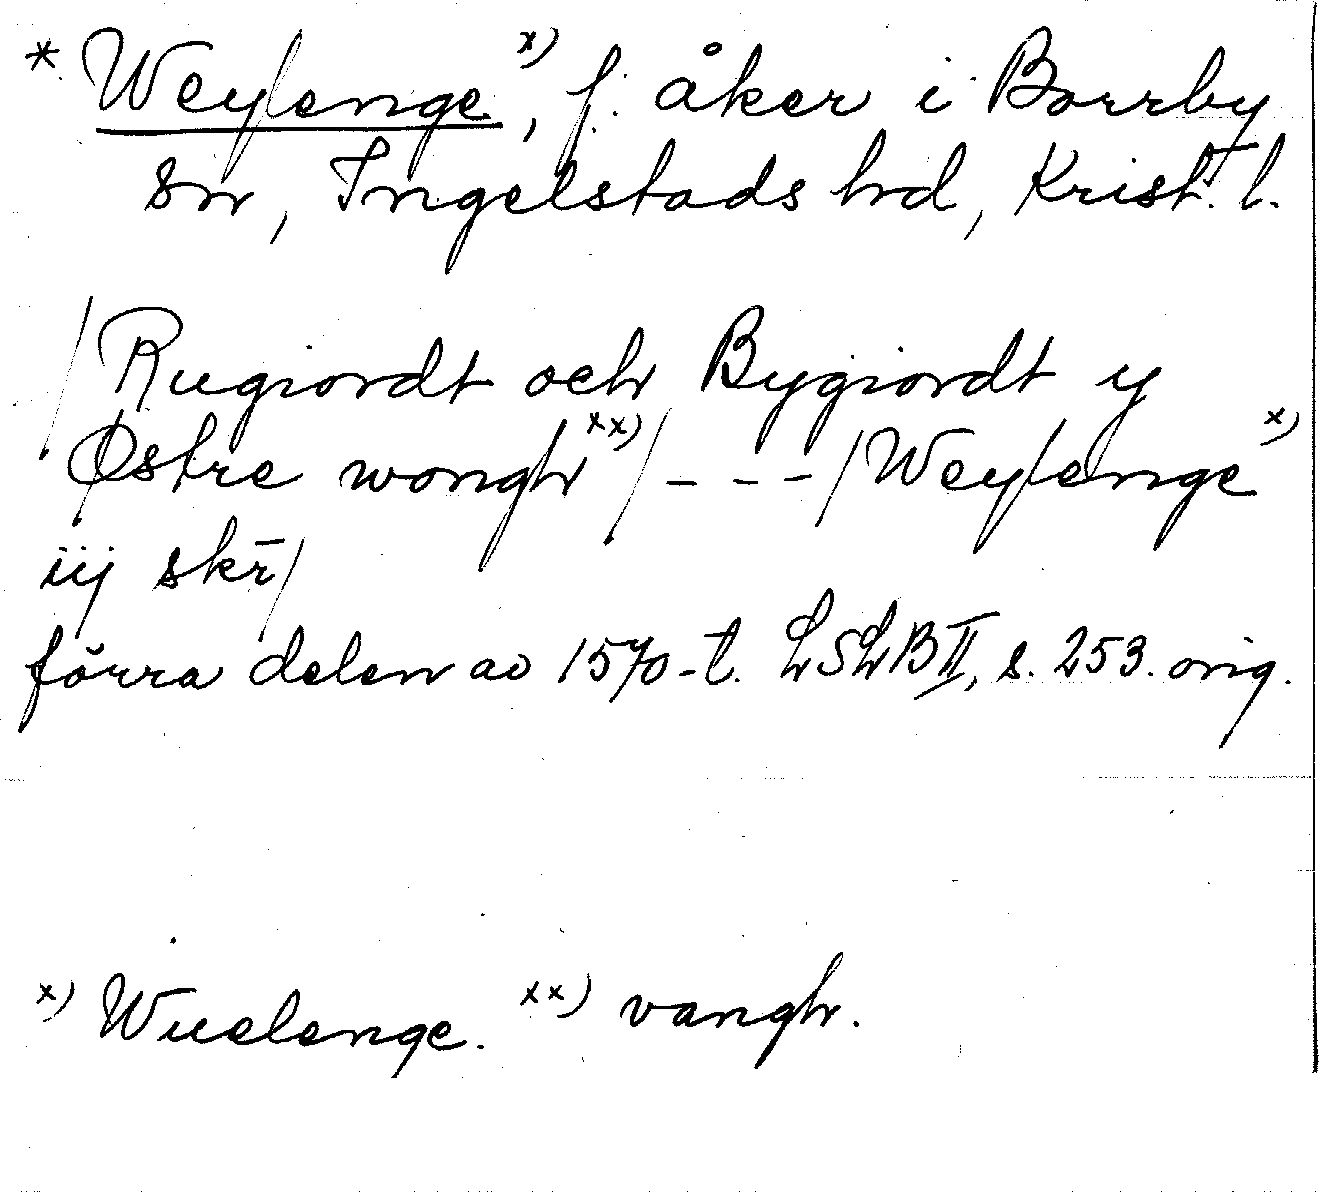 * Weylenge x), f. åker i Borrby
sn, Ingelstads hd, Krist. l.
/Rugiordt och Bygiordt ij
Østre wongh xx)/ - - - /Weylenge x)
iij skr̄/
förra delen av 1570-t. LSLB II, s. 253. orig.
x) Wuelenge. xx) vangh.